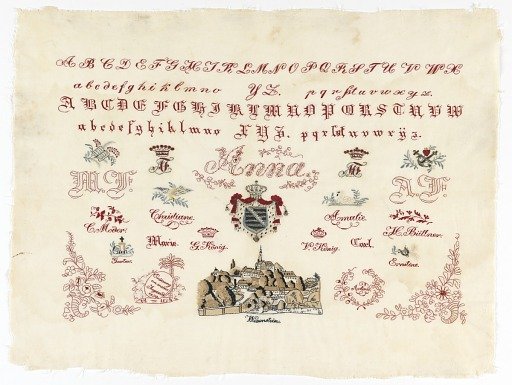 A B C D E F G H I K L M N O P Q R S T U V W X
a b c d e f g h i k l m n o Y Z. p q r s t u v w x y z.
A B C D E F G H I K L M N O P Q R S T U V W
a b c d e f g h i k l m n o X Y Z. p q r s t u v w x y z.
Anna.
M. F. A. F.
Christiane. Amalie.
C. Meder. H. Büttner.
Marie. G. König. V. König. Carl.
Ernstine.